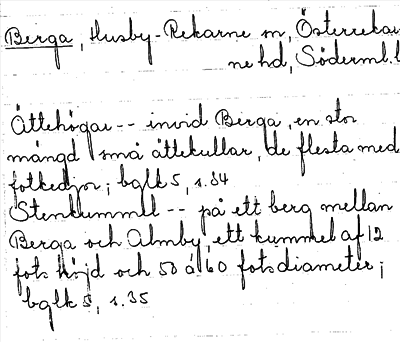 Berga, Husby-Rekarne sn, Österrekar
ne hd, Söderml. l
Ättehögar -- invid Berga, en stor
mängd små ättekullar, de flesta med
fotkedjor; bglk 5, s. 34
Stenkummel -- på ett berg mellan
Berga och Almby, ett kummel af 12
fots höjd och 50 á 60 fots diameter;
bglk 5, s. 35